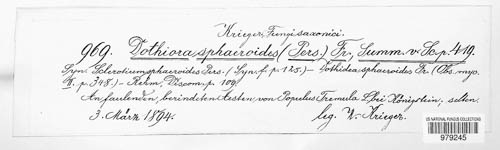 Krieger, Fungi saxonici.
969. Dothiora sphaeroides (Pers.) Fr., Summ. v. Sc. p. 419.
Syn. Sclerotium sphaeroides Pers. (Syn. f. p. 125.) – Dothidea sphaeroides Fr. (Obs. myc.
II. p. 348.) – Rehm, Discom. p. 109.
An faulenden, berindeten Aesten von Populus Tremula L. bei Königstein, selten.
3. März 1894. leg. W. Krieger.
US NATIONAL FUNGUS COLLECTIONS
979245